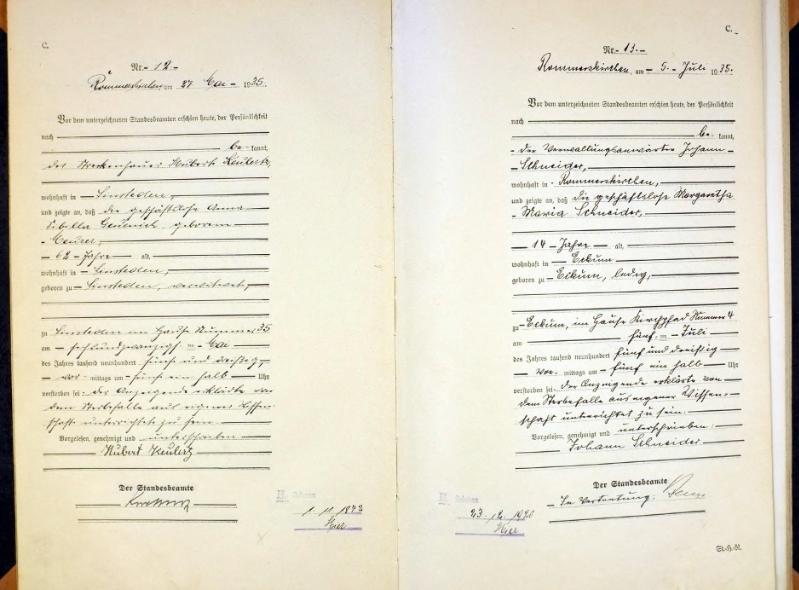 C.
Nr. 12
Rommerskirchen am 27 Mai 1935.
Vor dem unterzeichneten Standesbeamten erschien heute, der Persönlichkeit
nach
bekannt,
der Hubert Keulertz
wohnhaft in Sinsteden,
und zeigte an, daß die geschäftslose Anna
Sibilla geborene
62 Jahre alt,
wohnhaft in Sinsteden,
geboren zu Sinsteden, verwitwet,
zu Sinsteden im Hause Nummer 35
am sechsundzwanzigsten Mai
des Jahres tausend neunhundert fünf und dreißig
vor mittags um fünf ein halb Uhr
verstorben sei. Der Anzeigende erklärte von
dem Sterbefalle aus eigener Wissen-
schaft unterrichtet zu sein.
Vorgelesen, genehmigt und unterschrieben
Hubert Keulertz
Der Standesbeamte
C.
Nr. 13.
Rommerskirchen, am 5. Juli 1935.
Vor dem unterzeichneten Standesbeamten erschien heute, der Persönlichkeit
nach
bekannt,
der Verwaltungsanwärter Johann
Schneider,
wohnhaft in Rommerskirchen,
und zeigte an, daß die geschäftslose Margaretha
Maria Schneider,
14 Jahre alt,
wohnhaft in Eckum
geboren zu Eckum, ledig,
zu Eckum, im Hause Kirchpfad Nummer 4
am fünf Juli
des Jahres tausend neunhundert fünf und dreißig
vor mittags um fünf ein halb Uhr
verstorben sei. Der Anzeigende erklärte von
dem Sterbefalle aus eigener Wissen-
schaft unterrichtet zu sein.
Vorgelesen, genehmigt und unterschrieben.
Johann Schneider
Der Standesbeamte
In Vertretung:
St.-H.-N.